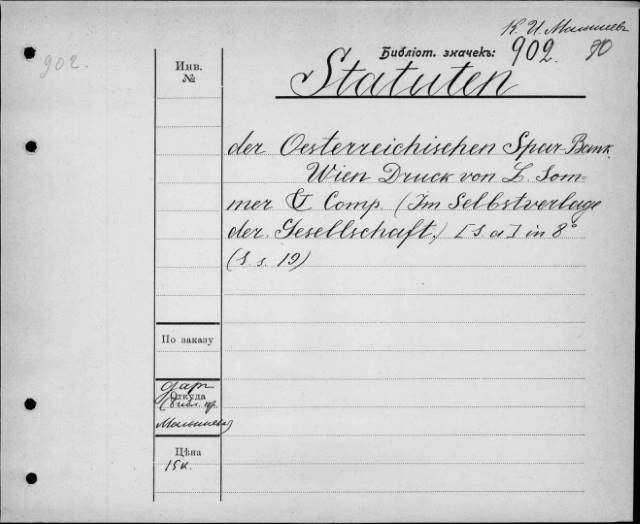 К. И. Малышевъ
902.
Инв.
№
Библіот. значекъ: 902. 80
Statuten
der Oesterreichischen Spar-Bank.
Wien Druck von L. Som=
mer & Comp. (Im Selbstverlage
der Gesellschaft.) [s. a.] in 8°
(S. s. 19)
По заказу
Откуда
даръ
(библ. пр.
Малышева)
Цѣна
15к.